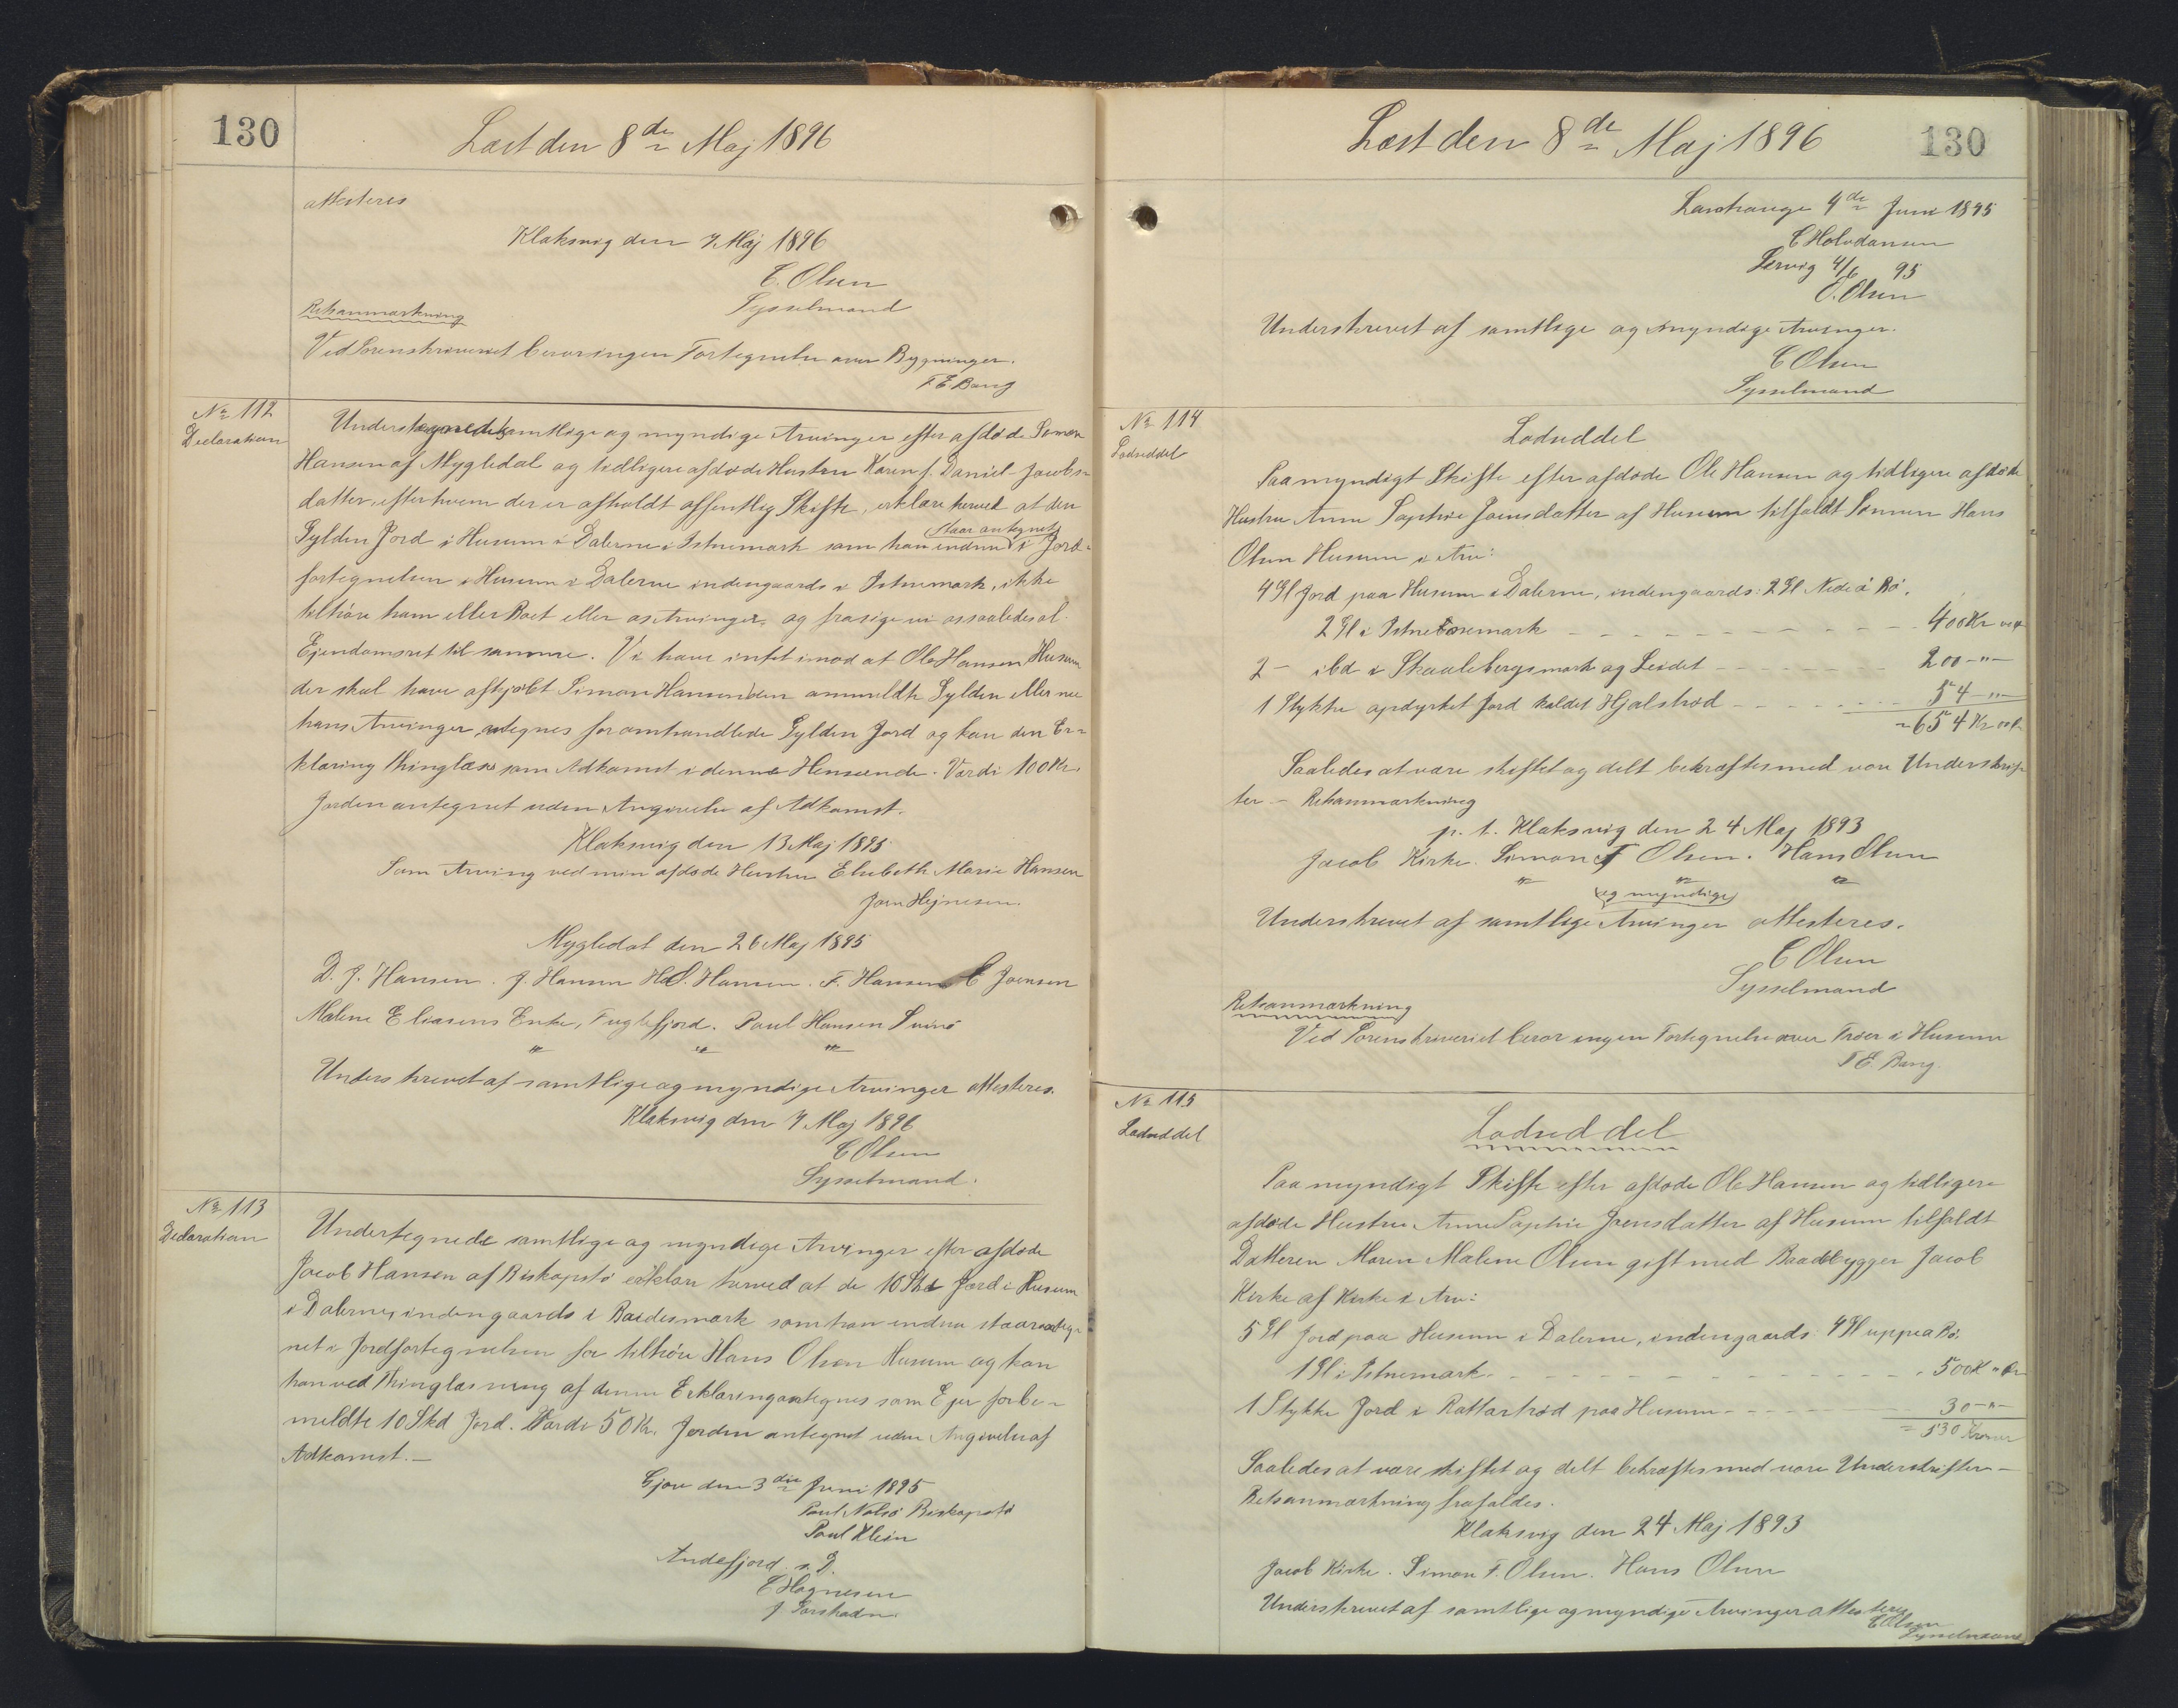 130
Læst den 8de Maj 1896
attesteres
Klaksvig den 7 Maj 1896
C. Olsen
Sysselmand
Retsanmærkning
Ved Sorenskriveriet beror ingen Fortegnelse over Bygninger.
F E Bang
No 112
Declaration
Undertegnede samtlige og myndige Arvinger efter afdøde Simon
Hansen af Mygledal og tidligere afdøde Hustru Karen f. Daniel-Jacobs-
datter, efter hvem der er afholdt offentlig Skifte, erklære herved at den
Gylden Jord i Husum i Dalerne i Istnemark som han endnu staar antegnet i Jord-
fortegnelsen i Husum i Dalerne indengaards i Istnemark, ikke
tilhøre ham eller Boet eller os Arvinger, og frasige vi os saaledes al
Ejendomsret til samme. Vi have intet imod at Ole Hansen Husum
der skal have afkjøbt Simon Hansen den anmeldte Gylden eller nu
hans Arvinger, antegnes for omhandlede Gylden Jord og kan den Er-
klæring thinglæses som Adkomst i denne Henseende. Værdi 100 Kr.
Jorden antegnet uden Angivelse af Adkomst.
Klaksvig den 13 Maj 1895
Som Arving ved min afdøde Hustru Elsebeth Marie Hansen
Joen Hejnesen.
Mygledal den 26 Maj 1895
D. J. Hansen. J. Hansen H. S. Hansen. F. Hansen C Joensen
Malene Eliasens Enke, Fuglefjord. Poul Hansen Svinø
Underskrevet af samtlige og myndige Arvinger attesteres.
Klaksvig den 7 Maj 1896
C Olsen
Sysselmand.
No 113
Declaration
Undertegnede samtlige og myndige Arvinger efter afdøde
Jacob Hansen af Biskopstø erklære herved at de 10 Skd Jord i Husum
i Dalerne, indengaards i Bardesmark som han endnu staar anteg-
net i Jordfortegnelsen for tilhøre Hans Olsen Husum og kan
han ved Thinglæsning af denne Erklæring antegnes som Ejer for be-
meldte 10 Skd Jord. Værdi 50 Kr. Jorden antegnet uden Angivelse af
Adkomst.—
Gjov den 3die Juni 1895
Poul Nolsø Biskopstø
Poul Klein
Andefjord s. D.
C Hognesen
J
130
Læst den 8de Maj 1896
4de Juni 1895
C Holvdansen
Lervig 4/6 95
O. Olsen
Underskrevet af samtlige og myndige Arvinger.
C Olsen
Sysselmand
No 114
Lodseddel
Lodseddel
Paa myndigt Skifte efter afdøde Ole Hansen og tidligere afdøde
Hustru Anne Sophie Joensdatter af Husum tilfaldt Sønnen Hans
Olsen Husum i Arv:
4 Gl Jord paa Husum i Dalerne, indengaards: 2 Gl Nede á Bø.
2 Gl i Istnemark - - - 400 Kr
2 - ibd i Skaalebergsmark og Leidet - - - 200 -"-
1 Stykke opdyrket Jord kaldet Hjalstrød - - - 54 -"-
= 654 Kr
Saaledes at være skiftet og delt bekræftes med vore Underskrif-
ter — Retsanmærkning
p. t. Klaksvig den 24 Maj 1893
Jacob Kirke. Simon F Olsen. Hans Olsen
Underskrevet af samtlige og myndige Arvinger attesteres.
C Olsen
Sysselmand
Retsanmærkning
Ved Sorenskriveriet beror ingen Fortegnelse over Trøer i Husum
F E. Bang.
No 115
Lodseddel
Lodseddel
Paa myndigt Skifte efter afdøde Ole Hansen og tidligere
afdøde Hustru Anne Sophie Joensdatter af Husum tilfaldt
Datteren Maren Malene Olsen gift med Baadebygger Jacob
Kirke af Kirke i Arv:
5 Gl Jord paa Husum i Dalerne, indengaards 4 Gl uppe á Bø.
1 Gl i Istnemark. - - - 500 K
1 Stykke Jord i Rattartrød paa Husum - - - 30 -"-
= 530 Kroner
Saaledes at være skiftet og delt bekræftes med vore Underskrifter —
Retsanmærkning frafaldes.
Klaksvig den 24 Maj 1893
Jacob Kirke. Simon F. Olsen. Hans Olsen
Underskrevet af samtlige og myndige Arvinger attesteres
C Olsen
Sysselmand